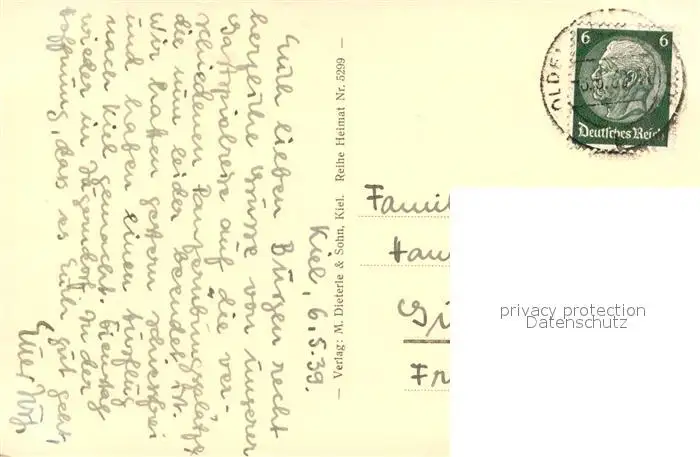 Kiel, 6.5.39.
Euch lieben Bürgen recht
herzliche Grüsse von unserer
auf die ver-
schiedenen Panzerübungsplätze
die nun leider beendet ist.
Wir hatten gestern schiessfrei
und haben einen Ausflug
nach Kiel gemacht. Dienstag
wieder in In der
Hoffnung, dass es Euch gut geht,
Euer
— Verlag: M. Dieterle & Sohn, Kiel. Reihe Heimat Nr. 5299 —
OLDE
6 6
Deutsches Reich
Famil
Hau
Gi
Fr
privacy protection
Datenschutz